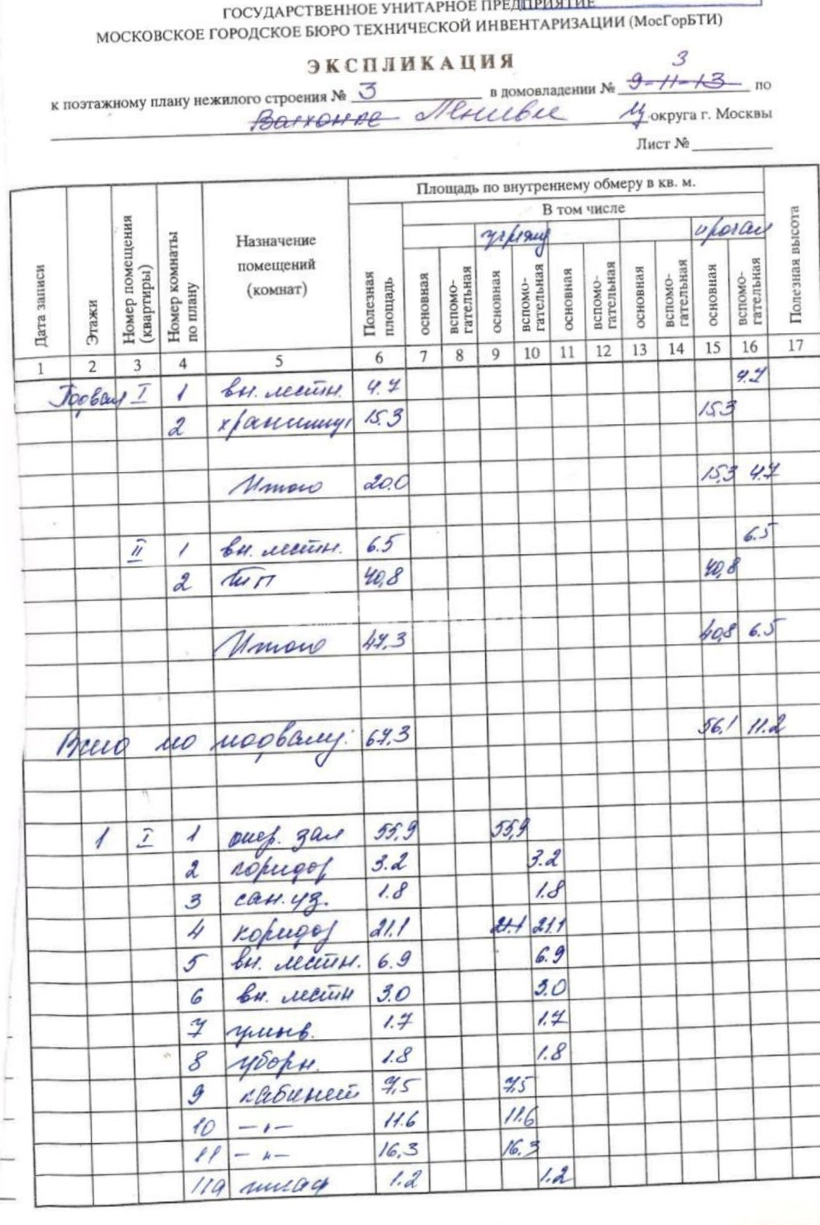 ГОСУДАРСТВЕННОЕ УНИТАРНОЕ ПРЕДПРИЯТИЕ
МОСКОВСКОЕ ГОРОДСКОЕ БЮРО ТЕХНИЧЕСКОЙ ИНВЕНТАРИЗАЦИИ (МосГорБТИ)
ЭКСПЛИКАЦИЯ
3
к поэтажному плану нежилого строения № 3 в домовладении № 9-11-13 по
Волхонке Ленивке Ц округа г. Москвы
Лист №
Дата записи Этажи Номер помещения (квартиры) Номер комнаты по плану Назначение помещений (комнат) Площадь по внутреннему обмеру в кв. м. Полезная высота
Полезная площадь В том числе
учрежд прочая
основная вспомо-гательная основная вспомо-гательная основная вспомо-гательная основная вспомо-гательная основная вспомо-гательная
1 2 3 4 5 6 7 8 9 10 11 12 13 14 15 16 17
Подвал I 1 вн. лестн. 4.7 4.7
2 хранилищ 15.3 15.3
Итого 20.0 15,3 4.7
II 1 вн. лестн. 6.5 6.5
2 40,8 40,8
Итого 47.3 40,8 6.5
Всего по подвалу: 67,3 56,1 11.2
1 I 1 опер. зал 55,9 55,9
2 коридор 3.2 3.2
3 сан.уз. 1.8 1.8
4 коридор 21.1 21.1 21.1
5 вн. лестн. 6.9 6.9
6 вн. лестн 3.0 3.0
7 умыв. 1.7 1.7
8 уборн. 1.8 1.8
9 кабинет 7,5 7,5
10 –"– 11.6 11.6
11 –"– 16,3 16.3
11а шкаф 1.2 1.2